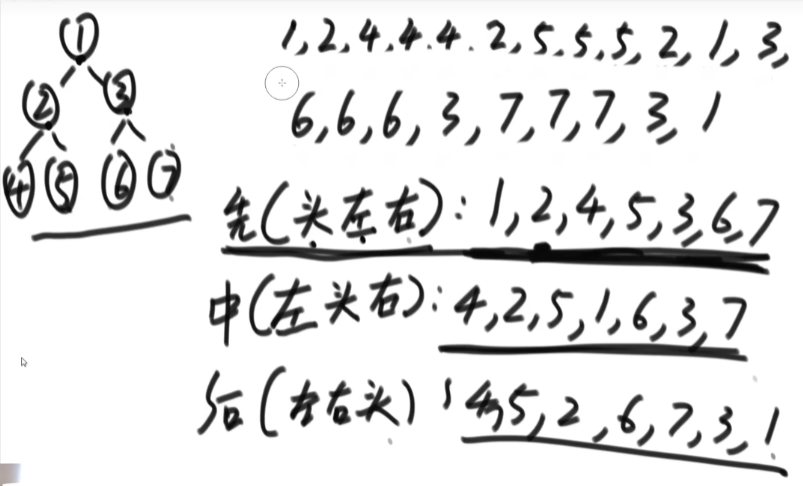 1
2 3
4 5 6 7
1,2,4.4.4.2,5.5.5,2,1,3,
6,6,6,3,7,7,7,3,1
先(头左右):1,2,4,5,3,6,7
中(左头右):4,2,5,1,6,3,7
后(左右头):4,5,2,6,7,3,1